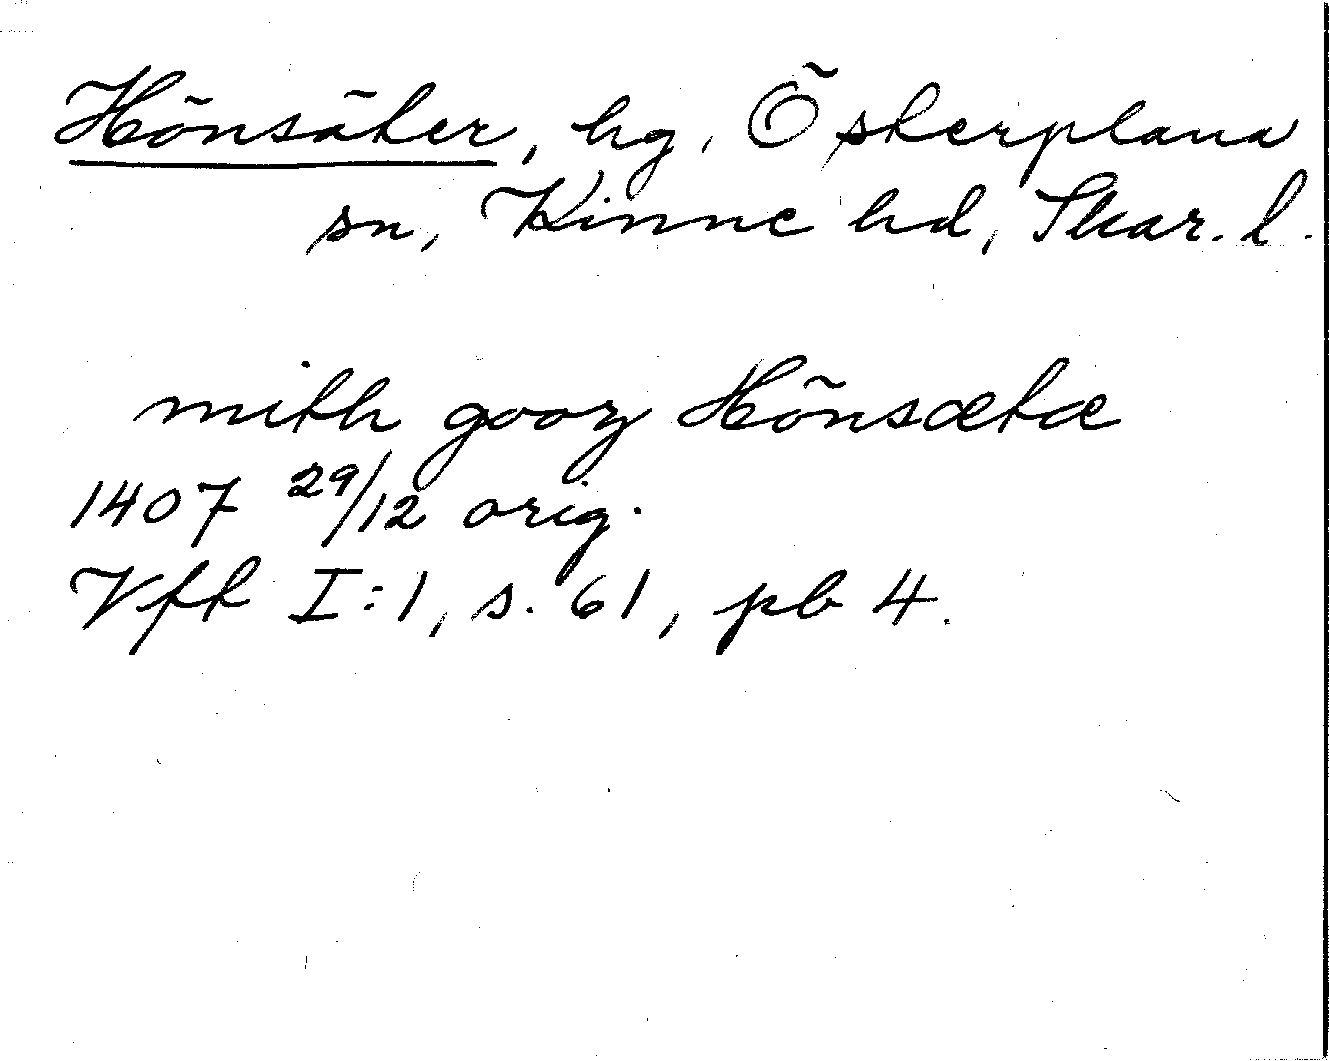 Hönsäter, hg, Österplana
sn, Kinne hd, Skar. l.
mith gooz Hönsætæ
1407 29/12 orig.
Vft I:1, s. 61, pb 4.